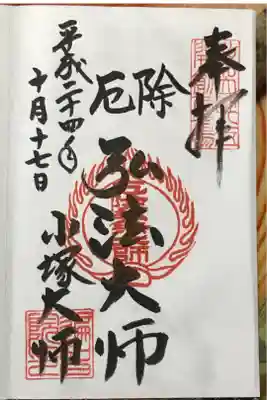 奉拝
除厄
弘法大師
小塚大師
平成二十四年
十月十七日